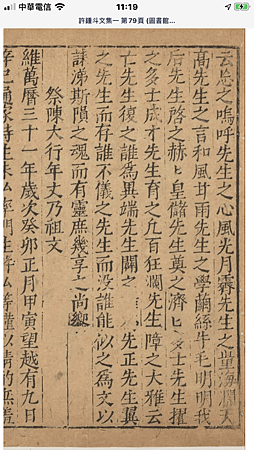 中華電信 11:19
許鍾斗文集一 第79頁 (圖書館...
云忘之嗚呼先生之心風光月霽先生之量海闊天
高先生之言和風甘雨先生之學繭絲牛毛明明我
后先生啓之赫匕皇儲先生奠之濟匕多士先生擢
之多士成才先生育之九百狂瀾先生障之大雅云
亡先生復之誰為異端先生闢之先正先生翼
先生而存誰不儀之先生而没誰能似之為文以
誄涕斯隕之魂而有靈庶幾享之尚饗
祭陳大行年丈乃祖文
維萬曆三十一年歲次癸卯正月甲寅望越有九日